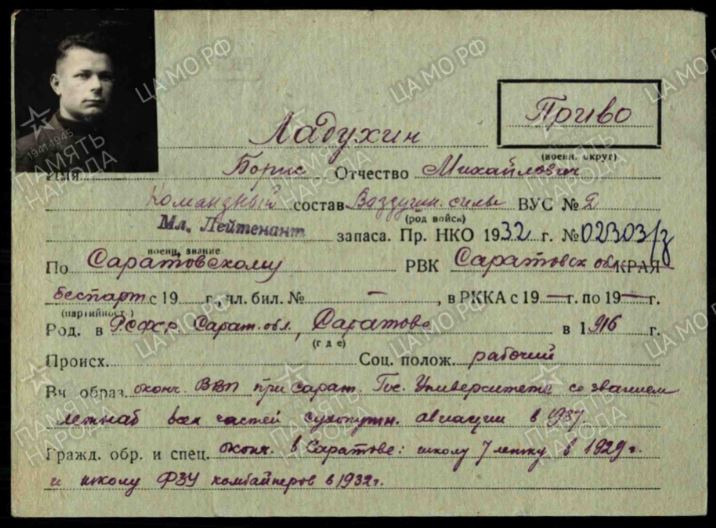 Приво
(военн. округ)
Ладухин
Имя Борис Отчество Михайлович
Командный состав Воздушн. силы ВУС № 9
(род войск)
Мл. Лейтенант запаса. Пр. НКО 1932 г. № 02303/з
военн. звание
По Саратовскому РВК Саратовск обл КРАЯ
беспарт с 19 г., чл. бил. № — , в РККА с 19 — г. по 19 — г.
(партийност.)
Род. в РСФСР Сарат. обл., Саратове в 1916 г.
(где)
Происх. Соц. полож. рабочий
Вч образ. оконч. ВВП при Сарат. Гос. Университете со званием
летнаб всех частей сухопутн. авиации в 1937
Гражд. обр. и спец. Оконч. в Саратове: школу 7 летку в 1929 г.
и школу ФЗУ комбайнеров в 1932 г.
ЦАМО РФ
1941-1945
ПАМЯТЬ
НАРОДА